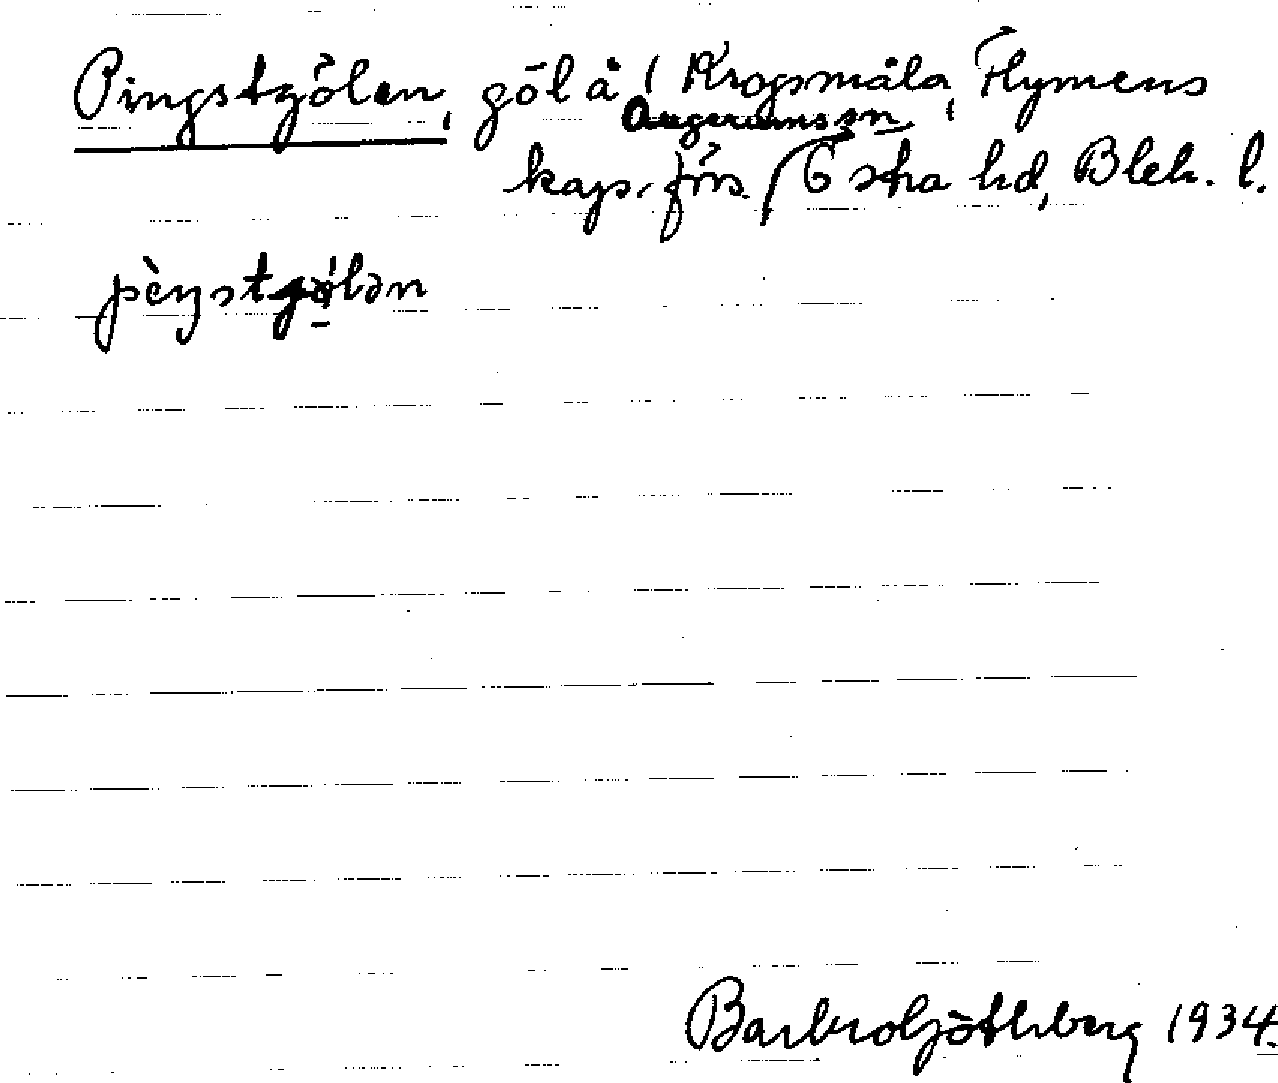 Pingstgölen, göl å Krogsmåla, Flymens
Augerums sn
kaps. förs. Östra hd, Blek. l.
pèŋstgö́lən
Barbro Göthberg 1934.